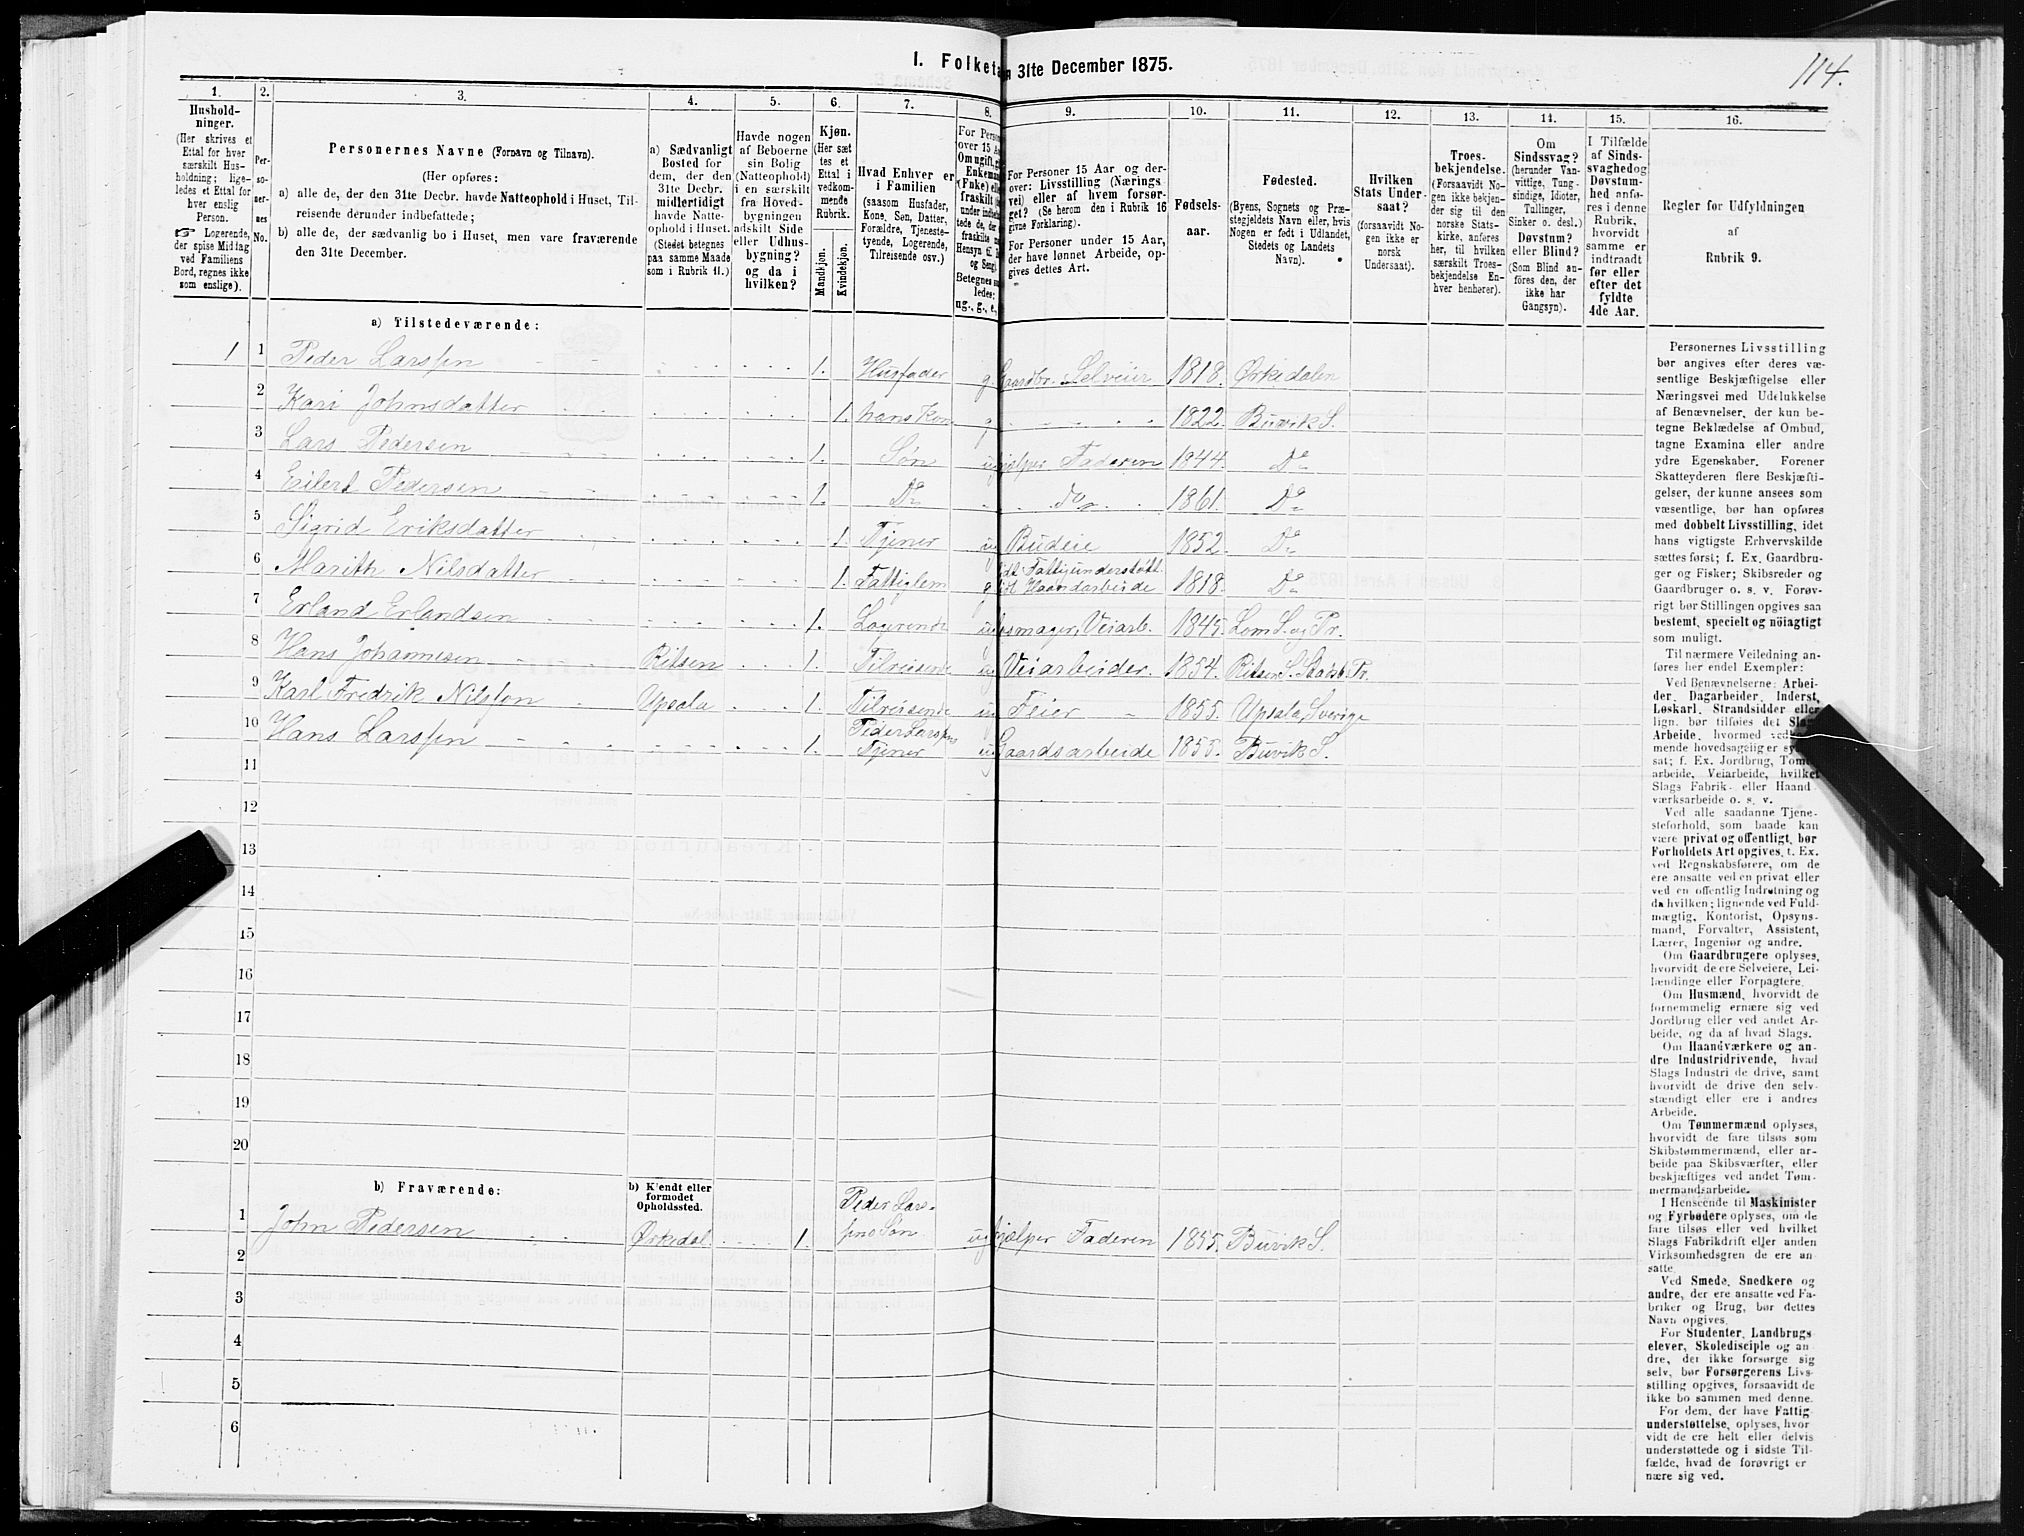 114.
I. Folketa
n 31te December 1875.
1. 2. 3. 4. 5. 6. 7. 8. 9. 10. 11. 12. 13. 14. 15. 16.
Hushold-
ninger.
(Her skrives et
Ettal for hver
særskilt Hus-
holdning; lige-
ledes et Ettal for
hver enslig
Person.
☞ Logerende,
der spise Middag
ved Familiens
Bord, regnes ikke
som enslige).
Per-
so-
ner-
nes
No.
Personernes Navne (Fornavn og Tilnavn).
(Her opføres:
a) alle de, der den 31te Decbr. havde Natteophold i Huset, Til-
reisende derunder indbefattede;
b) alle de, der sædvanlig bo i Huset, men vare fraværende
den 31te December.
a) Sædvanligt
Bosted for
dem, der den
31te Decbr.
midlertidigt
havde Natte-
ophold i Huset.
(Stedet betegnes
paa samme Maade
som i Rubrik 11.)
Havde nogen
af Beboerne
sin Bolig
(Natteophold)
i en særskilt
fra Hoved-
bygningen
adskilt Side
eller Udhus-
bygning?
og da i
hvilken?
Kjøn.
(Her sæt
tes et
Ettal i
vedkom-
mende
Rubrik.
Mandkjøn.
Kvindekjøn.
Hvad Enhver er
i Familien
(saasom Husfader,
Kone, Søn, Datter,
Forældre, Tjeneste-
tyende, Logerende,
Tilreisende osv.)
For Person
over 15 A
Om ugift, g
Enkem
(Enke) el
fraskilt
under indbe
tede de, der
fraskilte
Hensyn til
og Seng
Betegnes
ledes:
ug., g., e,
For Personer 15 Aar og der-
over: Livsstilling (Nærings
vei) eller af hvem forsør-
get? (Se herom den i Rubrik 16
givne Forklaring).
For Personer under 15 Aar,
der have lønnet Arbeide, op-
gives dettes Art.
Fødsels-
aar.
Fødested.
(Byens, Sognets og Præ-
stegjeldets Navn eller, hvis
Nogen er født i Udlandet,
Stedets og Landets
Navn).
Hvilken
Stats Under-
saat?
(forsaavidt No-
gen ikke er
norsk
Undersaat).
Troes-
bekjendelse.
(Forsaavidt No-
gen ikke bekjen-
der sig til den
norske Stats-
kirke, anføres
her, til hvilken
særskilt Troes-
bekjendelse En-
hver henhører).
Om
Sindssvag?
(herunder Van-
vittige, Tung-
sindige, Idioter,
Tullinger,
Sinker o. desl.)
Døvstum?
eller Blind?
(Som Blind an-
føres den, der
ikke har
Gangsyn).
I Tilfælde
af Sinds-
svaghed og
Døvstum-
hed anfø-
res i denne
Rubrik,
hvorvidt
samme er
indtraadt
før eller
efter det
fyldte
4de Aar.
Regler for Udfyldningen
af
Rubrik 9.
a) Tilstedeværende:
1 1 Peder Larssen 1. Husfader g. Gaardbr. Selveier 1818. Ørkedalen
2 Kari Johnsdatter 1. hans Kon g 1822. Buvik S.
3 Lars Pedersen 1. Søn ug hjælper Faderen 1844. Do
4 Eilert Pedersen 1. Do do 1861. Do
5 Sigrid Eriksdatter 1. Tjener ug Budeie 1852. Do
6 Marith Nilsdatter 1. Fattiglem g Fattigunderstøtt. Haandarbeide 1818. Do
7 Erland Erlandsen 1. Logerende ug smager, Veiarb. 1845. Lom S. og Pr.
8 Hans Johannesen Ritsen 1. Tilreisende ug Veiarbeider. 1854. Ritsen S. Stadsb. Pr.
9 Karl Fredrik Nilsson Upsala 1. Tilreisende ug Feier 1855. Upsala, Sverige
10 Hans Larssen 1. Peder Larssens Tjener ug Gaardsarbeide 1855. Buvik S.
11
12
13
14
15
16
17
18
19
20
b) Fraværende:
b) Kjendt eller
formodet
Opholdssted.
1 John Pedersen Ørkedal 1. Peder Lars-
sens Søn ug hjælper Faderen 1855. Buvik S.
2
3
4
5
6
Personernes Livsstilling
bør angives efter deres væ-
sentlige Beskjæftigelse eller
Næringsvei med Udelukkelse
af Benævnelser, der kun be-
tegne Beklædelse af Ombud,
tagne Examina eller andre
ydre Egenskaber. Forener
Skatteyderen flere Beskjæfti-
gelser, der kunne ansees som
væsentlige, bør han opføres
med dobbelt Livsstilling, idet
hans vigtigste Erhvervskilde
sættes først; f. Ex. Gaardbru-
ger og Fisker; Skibsreder og
Gaardbruger o. s. v. Forøv-
rigt bør Stillingen opgives saa
bestemt, specielt og nøiagtigt
som muligt.
Til nærmere Veiledning an-
føres her endel Exempler:
Ved Benævnelserne: Arbei-
der, Dagarbeider, Inderst,
Løskarl, Strandsidder eller
lign. bør tilføies det Slags
Arbeide, hvormed vedkom-
mende hovedsagelig er syssel-
sat; f. Ex. Jordbrug, Tomte-
arbeide, Veiarbeide, hvilket
Slags Fabrik- eller Haand-
værksarbeide o. s. v.
Ved alle saadanne Tjene-
steforhold, som baade kan
være privat og offentligt, bør
Forholdets Art opgives, t. Ex.
ved Regnskabsførere, om de
ere ansatte ved en privat eller
ved en offentlig Indretning og
da hvilken; lignende ved Fuld-
mægtig, Kontorist, Opsyns-
mand, Forvalter, Assistent,
Lærer, Ingeniør og andre.
Om Gaardbrugere oplyses,
hvorvidt de ere Selveiere, Lei-
lændinge eller Forpagtere.
Om Husmænd, hvorvidt de
fornemmelig ernære sig ved
Jordbrug eller ved andet Ar-
beide, og da af hvad Slags.
Om Haandværkere og an-
dre Industridrivende, hvad
Slags Industri de drive, samt
hvorvidt de drive den selv-
stændigt eller ere i andres
Arbeide.
Om Tømmermænd oplyses,
hvorvidt de fare tilsøs som
Skibstømmermænd, eller ar-
beide paa Skibsværfter, eller
beskjæftiges ved andet Tøm-
mermandsarbeide.
I Henseende til Maskinister
og Fyrbødere oplyses, om de
fare tilsøs eller ved hvilket
Slags Fabrikdrift eller anden
Virksomhedsgren de ere an-
satte.
Ved Smede, Snedkere og
andre, der ere ansatte ved Fa-
briker og Brug, bør dettes
Navn opgives.
For Studenter, Landbrugs
elever, Skoledisciple og an
dre, der ikke forsørge sig
selv, bør Forsørgerens Livs-
stilling opgives, forsaavidt de
ikke bo sammen med denne.
For dem, der have Fattig
understøttelse, oplyses, hvor
vidt de ere helt eller delvis
understøttede og i sidste Til-
fælde, hvad de forøvrigt er
nære sig ved.